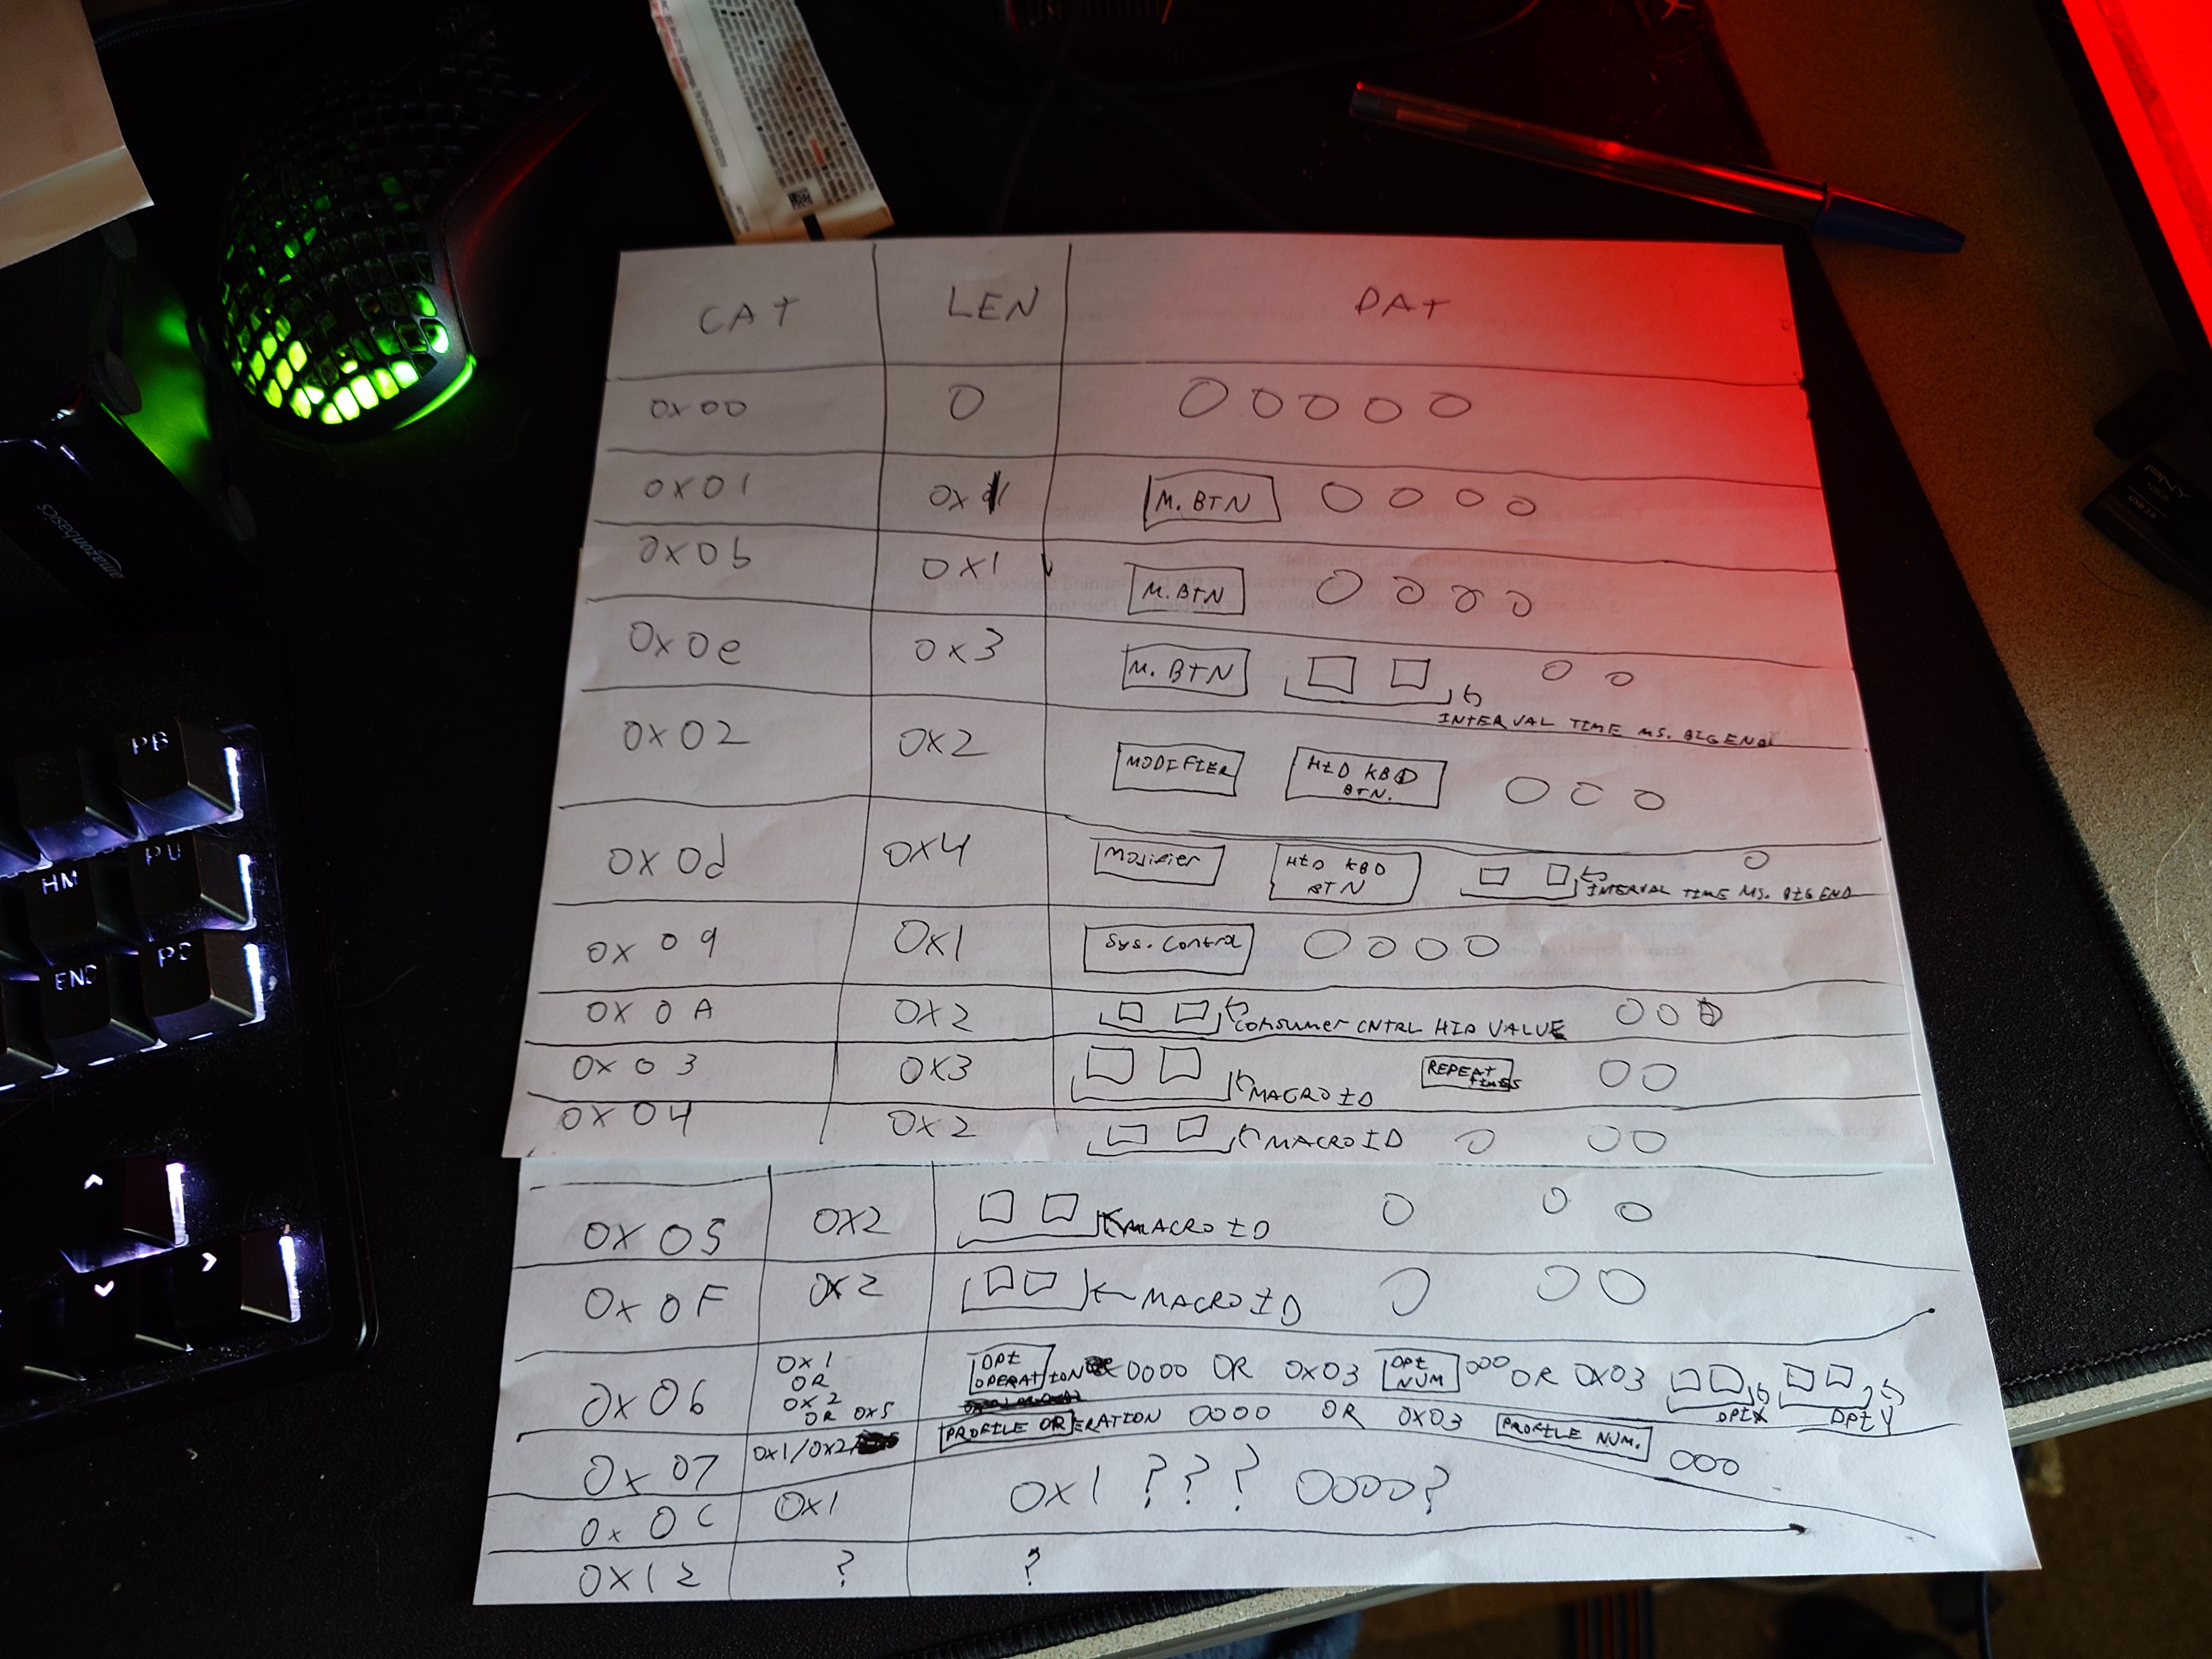 CAT LEN DAT
0x00 0 0 0 0 0 0
0x01 0x1 M. BTN 0 0 0 0
0x0b 0x1 M. BTN 0 0 0 0
0x0e 0x3 M. BTN 0 0
INTERVAL TIME MS. BIG END
0x02 0x2 MODIFIER HID KBD BTN. 0 0 0
0x0d 0x4 Modifier HID KBD BTN INTERVAL TIME MS. BIG END 0
0x09 0x1 Sys. Control 0 0 0 0
0x0A 0x2 Consumer CNTRL HID VALUE 0 0 0
0x03 0x3 MACRO ID REPEAT TIMES 0 0
0x04 0x2 MACRO ID 0 0 0
0x05 0x2 MACRO ID 0 0 0
0x0F 0x2 MACRO ID 0 0 0
0x06 0x1 OR 0x2 OR 0x5 DPI OPERATION 0000 OR 0x03 DPI NUM 000 OR 0x03 DPI X DPI Y
0x07 0x1/0x2 PROFILE OPERATION 0000 OR 0x03 PROFILE NUM. 000
0x0C 0x1 0x1 ? ? ? 0000?
0x12 ? ?
PB
PU
HM
PD
END
amazonbasics
PNY
USB 3.0